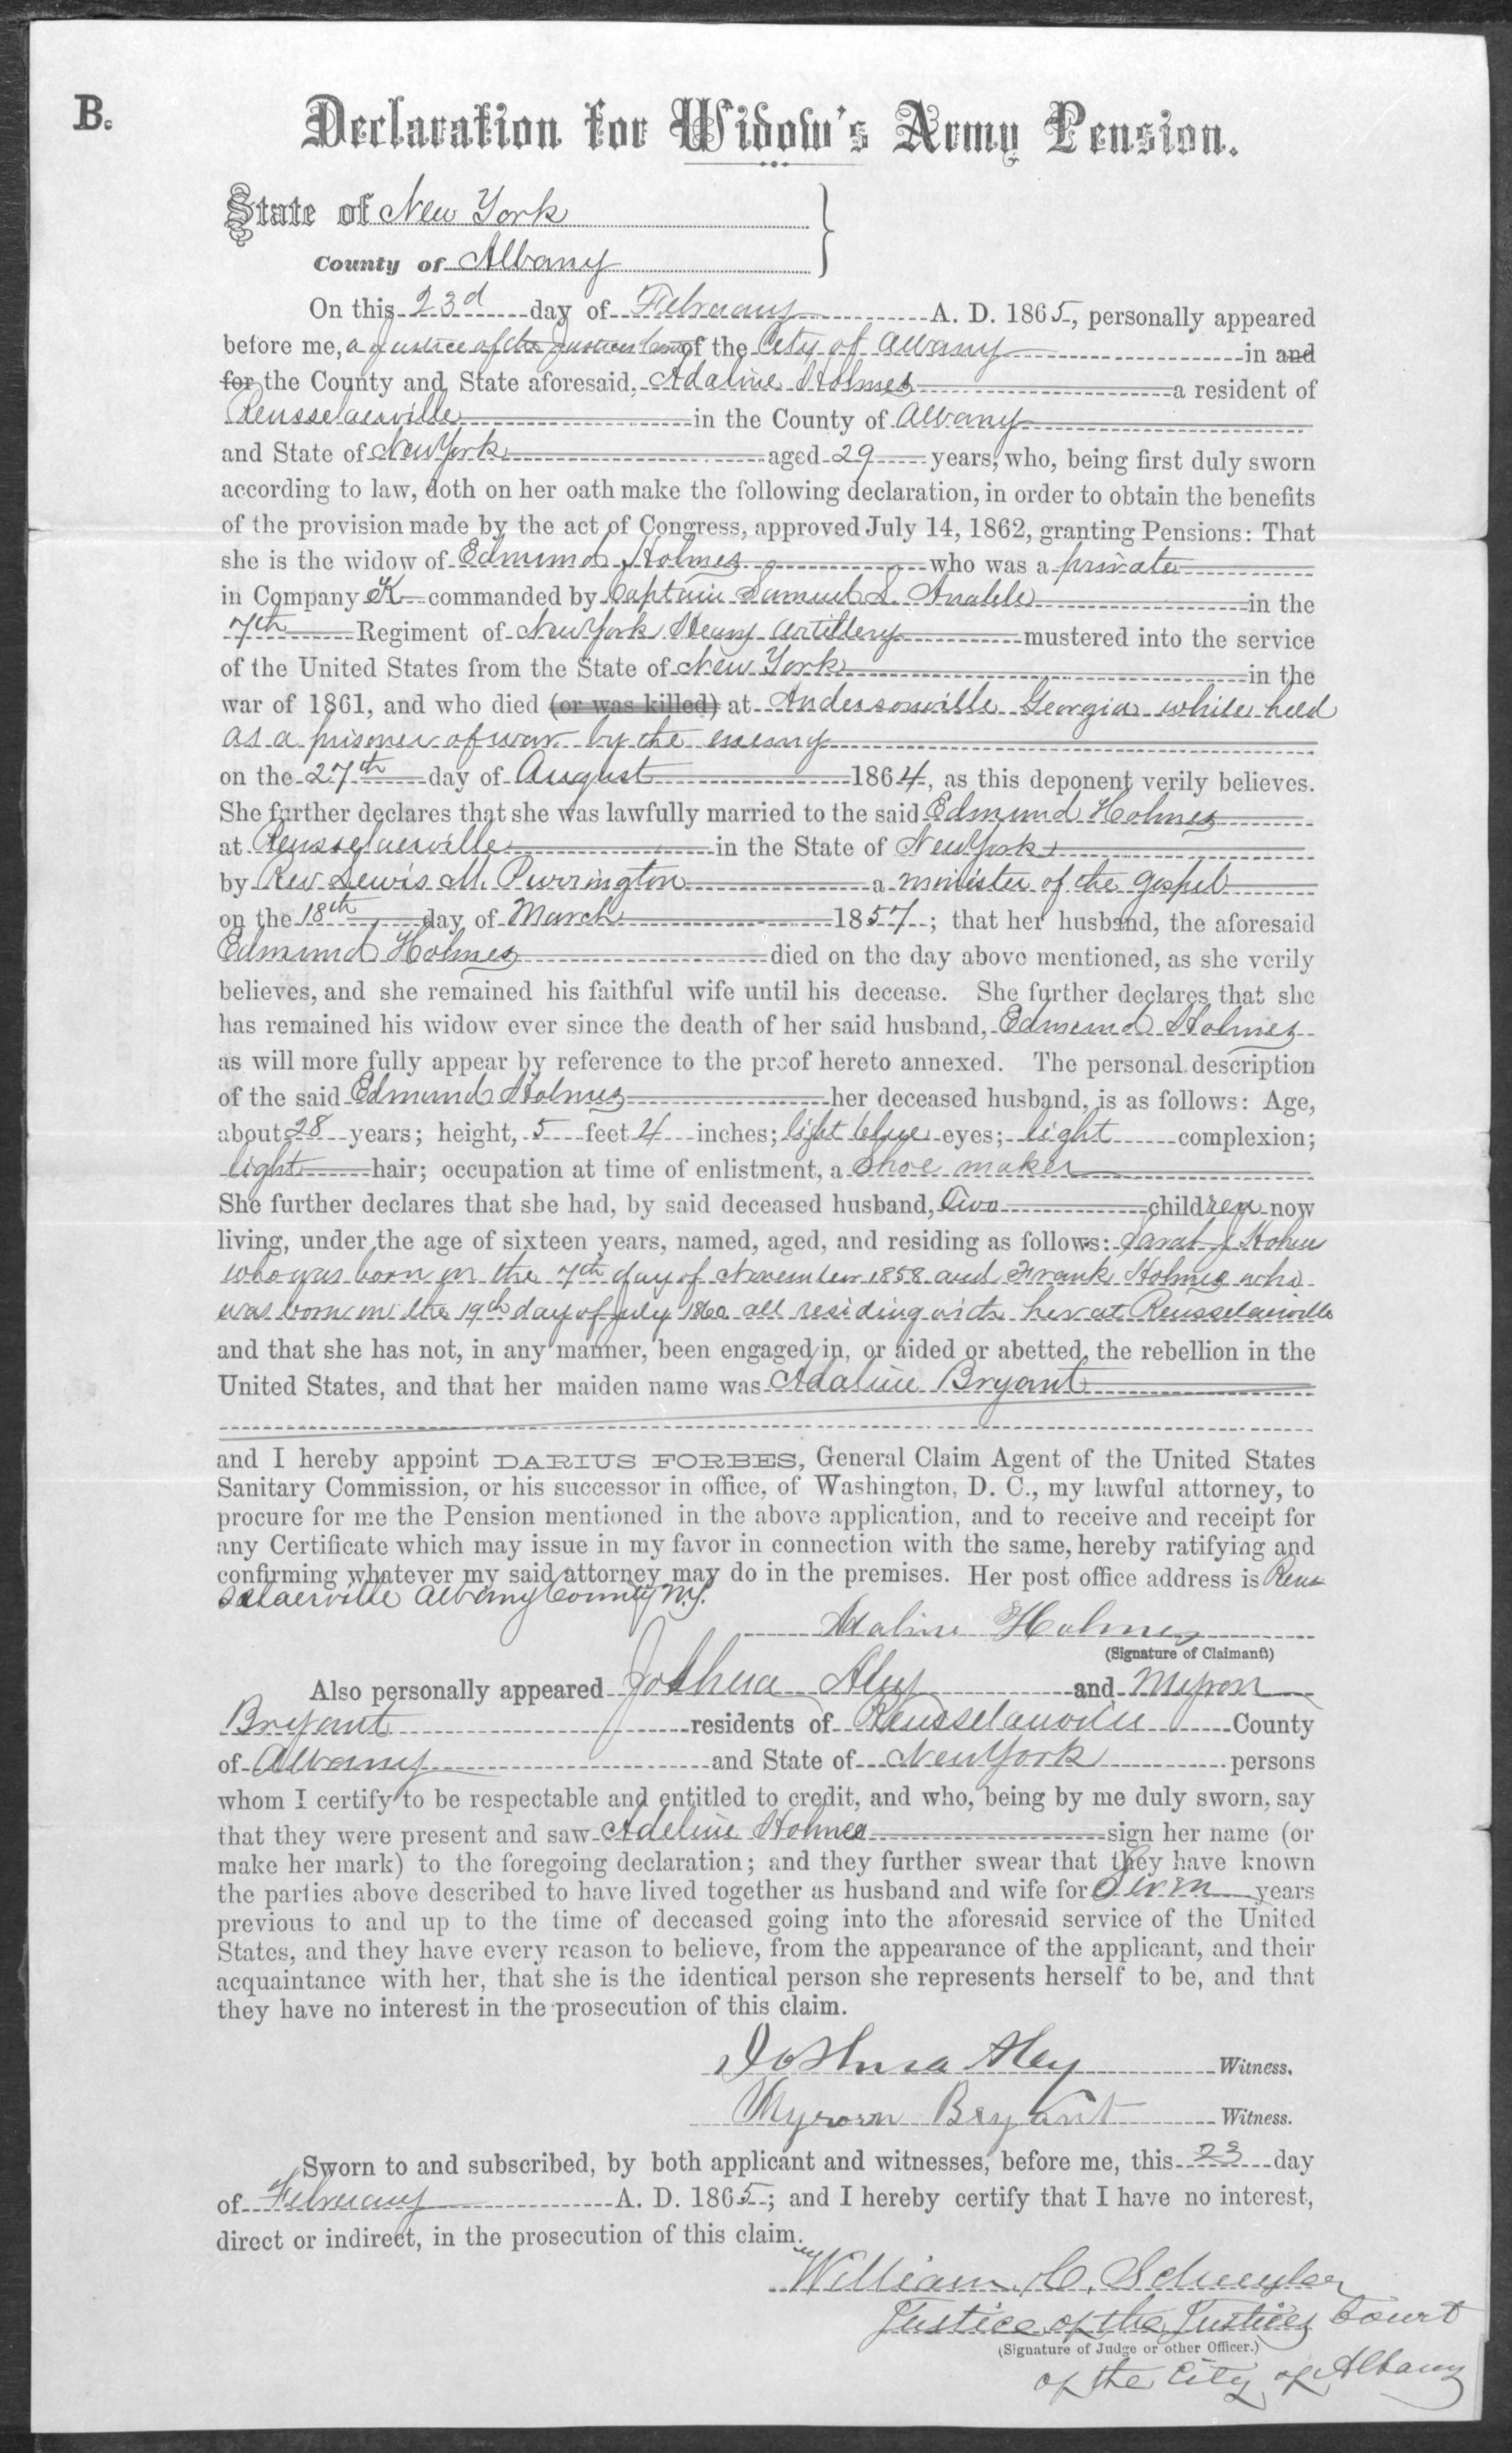 B.
Declaration for Widow's Army Pension.
State of New York
County of Albany
On this 23d day of February A. D. 1865, personally appeared
before me, a Justice of the Justices Court of the City of Albany in and
for the County and State aforesaid, Adaline Holmes a resident of
Rensselaerville in the County of Albany
and State of New York aged 29 years, who, being first duly sworn
according to law, doth on her oath make the following declaration, in order to obtain the benefits
of the provision made by the act of Congress, approved July 14, 1862, granting Pensions: That
she is the widow of Edmund Holmes who was a private
in Company K commanded by Captain Samuel L. Anable in the
7th Regiment of New York Heavy Artillery mustered into the service
of the United States from the State of New York in the
war of 1861, and who died (or was killed) at Andersonville Georgia while held
as a prisoner of war by the enemy
on the 27th day of August 1864, as this deponent verily believes.
She further declares that she was lawfully married to the said Edmund Holmes
at Rensselaerville in the State of New York
by Rev. Lewis M. Purrington a minister of the gospel
on the 18th day of March 1857; that her husband, the aforesaid
Edmund Holmes died on the day above mentioned, as she verily
believes, and she remained his faithful wife until his decease. She further declares that she
has remained his widow ever since the death of her said husband, Edmund Holmes
as will more fully appear by reference to the proof hereto annexed. The personal description
of the said Edmund Holmes her deceased husband, is as follows: Age,
about 28 years; height, 5 feet 4 inches; light blue eyes; light complexion;
light hair; occupation at time of enlistment, a Shoe maker
She further declares that she had, by said deceased husband, two children now
living, under the age of sixteen years, named, aged, and residing as follows: Sarah J Holmes
who was born on the 7th day of November 1858 and Frank Holmes who
was born on the 19th day of July 1860 all residing with her at Rensselaerville
and that she has not, in any manner, been engaged in, or aided or abetted, the rebellion in the
United States, and that her maiden name was Adaline Bryant
and I hereby appoint DARIUS FORBES, General Claim Agent of the United States
Sanitary Commission, or his successor in office, of Washington, D. C., my lawful attorney, to
procure for me the Pension mentioned in the above application, and to receive and receipt for
any Certificate which may issue in my favor in connection with the same, hereby ratifying and
confirming whatever my said attorney may do in the premises. Her post office address is Rens
selaerville Albany County N.Y.
Adaline Holmes
(Signature of Claimant)
Also personally appeared Joshua Aley and Myron
Bryant residents of Rensselaerville County
of Albany and State of New York persons
whom I certify to be respectable and entitled to credit, and who, being by me duly sworn, say
that they were present and saw Adeline Holmes sign her name (or
make her mark) to the foregoing declaration; and they further swear that they have known
the parties above described to have lived together as husband and wife for Seven years
previous to and up to the time of deceased going into the aforesaid service of the United
States, and they have every reason to believe, from the appearance of the applicant, and their
acquaintance with her, that she is the identical person she represents herself to be, and that
they have no interest in the prosecution of this claim.
Joshua Aley Witness.
Myrorn Bryant Witness.
Sworn to and subscribed, by both applicant and witnesses, before me, this 23 day
of February A. D. 1865; and I hereby certify that I have no interest,
direct or indirect, in the prosecution of this claim.
William C. Schuyler
Justice of the Justices Court
(Signature of Judge or other Officer.)
of the City of Albany